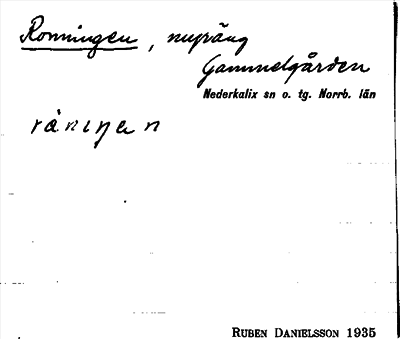 Ronningen, nupräng
Gammelgården
Nederkalix sn o. tg. Norrb. län
råniŋen
RUBEN DANIELSSON 1935